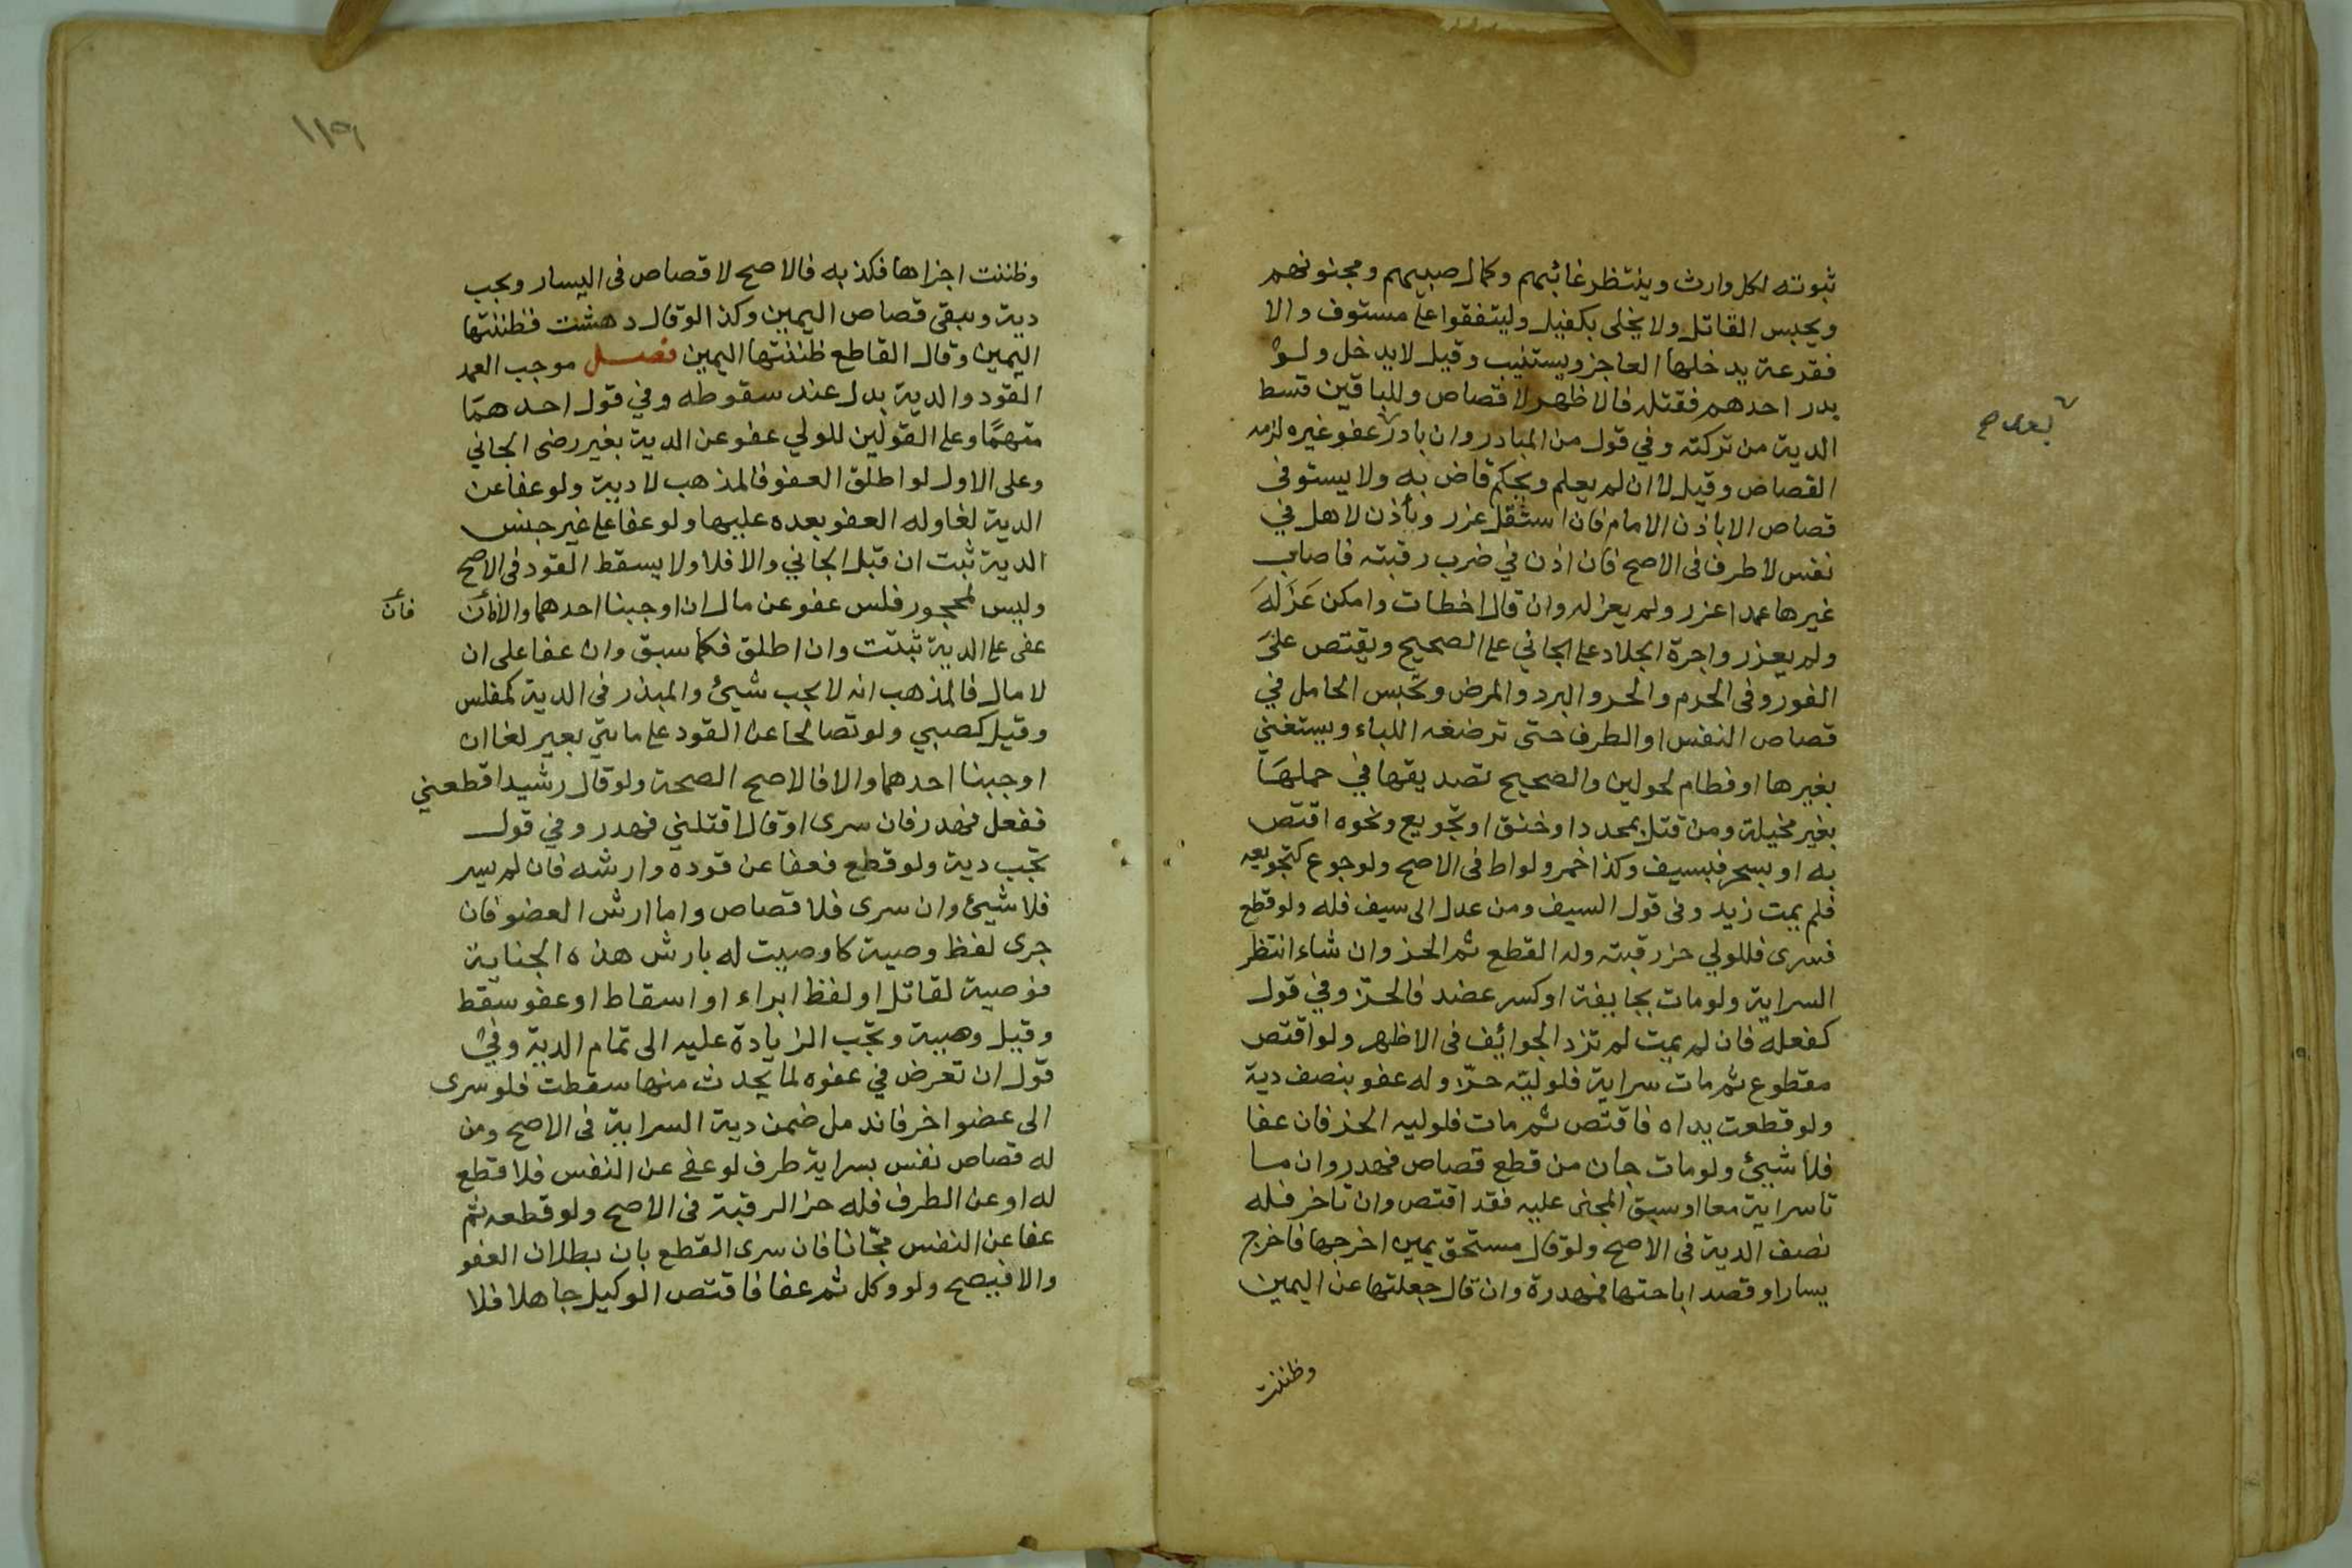 ثبوته لكل وارث وينتظر غائبهم وكمال صبيهم ومجنونهم
ويحبس القاتل ولا يخلى بكفيل وليتفقوا على مستوف والا
فقرعة يدخلها العاجز ويستنيب وقيل لا يدخل ولو
بدر احدهم فقتله فالاظهر لا قصاص وللباقين قسط
الدية من تركته وفي قول من المبادر وان بادر عفو غيره لزمه
بعد صح
القصاص وقيل لا ان لم يعلم ويحكم قاض به ولا يستوفى
قصاص الا باذن الامام فان استقل عزر ويأذن لاهل في
نفس لا طرف في الاصح فان اذن في ضرب رقبته فاصاب
غيرها عمدا عزر ولم يعزله وان قال اخطات وامكن عَزَلَهَ
ولم يعزر واجرة الجلاد على الجاني على الصحيح ويقتص على
الفور وفى الحرم والحر والبرد والمرض وتحبس الحامل في
قصاص النفس او الطرف حتى ترضعه اللباء ويستغني
بغيرها او فطام لحولين والصحيح تصديقها في حملها
بغير مخيلة ومن قتل بمحدد او خنق او تجويع ونحوه اقتص
به او بسحر فبسيف وكذا خمر ولواط فى الاصح ولو جوع كتجويعه
فلم يمت زيد وفى قول السيف ومن عدل الى سيف فله ولو قطع
فسرى فللولي حز رقبته وله القطع ثم الحز وان شاء انتظر
السراية ولو مات بجايفة او كسر عضد فالحزّ وفي قول
كفعله فان لم يمت لم تزد الجوائف فى الاظهر ولو اقتص
مقطوع ثم مات سراية فلوليّه حزّ وله عفو بنصف دية
ولو قطعت يداه فاقتص ثم مات فلوليه الحز فان عفا
فلا شيئ ولو مات جان من قطع قصاص فهدر وان ما
تا سراية معا او سبق المجنى عليه فقد اقتص وان تاخر فله
نصف الدية فى الاصح ولو قال مستحق يمين اخرجها فاخرج
يسارا وقصد اباحتها فمهدرة وان قال جعلتها عن اليمين
وظننت
١١٩
وظننت اجزاها فكذبه فالاصح لا قصاص فى اليسار ويجب
دية ويبقى قصاص اليمين وكذا لو قال دهشت فظننتها
اليمين وقال القاطع ظننتها اليمين فصل موجب العمد
القود والدية بدل عند سقوطه وفي قول احدهما
مبهمًا وعلى القولين للولي عفو عن الدية بغير رضى الجاني
وعلى الاول لو اطلق العفو فالمذهب لا دية ولو عفا عن
الدية لغا وله العفو بعده عليها ولو عفا على غير جنس
الدية ثبت ان قبل الجاني والا فلا ولا يسقط القود فى الاصح
وليس لمحجور فلس عفو عن مال ان اوجبنا احدهما والا فان
فان
عفى على الدية ثبتت وان اطلق فكما سبق وان عفا على ان
لا مال فالمذهب انه لا يجب شيئ والمبذر فى الدية كمفلس
وقيل كصبي ولو تصالحا عن القود على مايتي بعير لغا ان
اوجبنا احدهما والا فالاصح الصحة ولو قال رشيد اقطعني
ففعل فهدر فان سرى او قال اقتلني فهدر وفي قول
تجب دية ولو قطع فعفا عن قوده وارشه فان لم يسر
فلا شيئ وان سرى فلا قصاص واما ارش العضو فان
جرى لفظ وصية كاوصيت له بارش هذه الجناية
فوصية لقاتل او لفظ ابراء او اسقاط او عفو سقط
وقيل وصية وتجب الزيادة عليه الى تمام الدية وفي
قول ان تعرض في عفوه لما يحدث منها سقطت فلو سرى
الى عضو اخر فاندمل ضمن دية السراية فى الاصح ومن
له قصاص نفس بسراية طرف لو عفى عن النفس فلا قطع
له او عن الطرف فله حز الرقبة فى الاصح ولو قطعه ثم
عفا عن النفس مجّانا فان سرى القطع بان بطلان العفو
والا فيصح ولو وكل ثم عفا فاقتص الوكيل جاهلا فلا